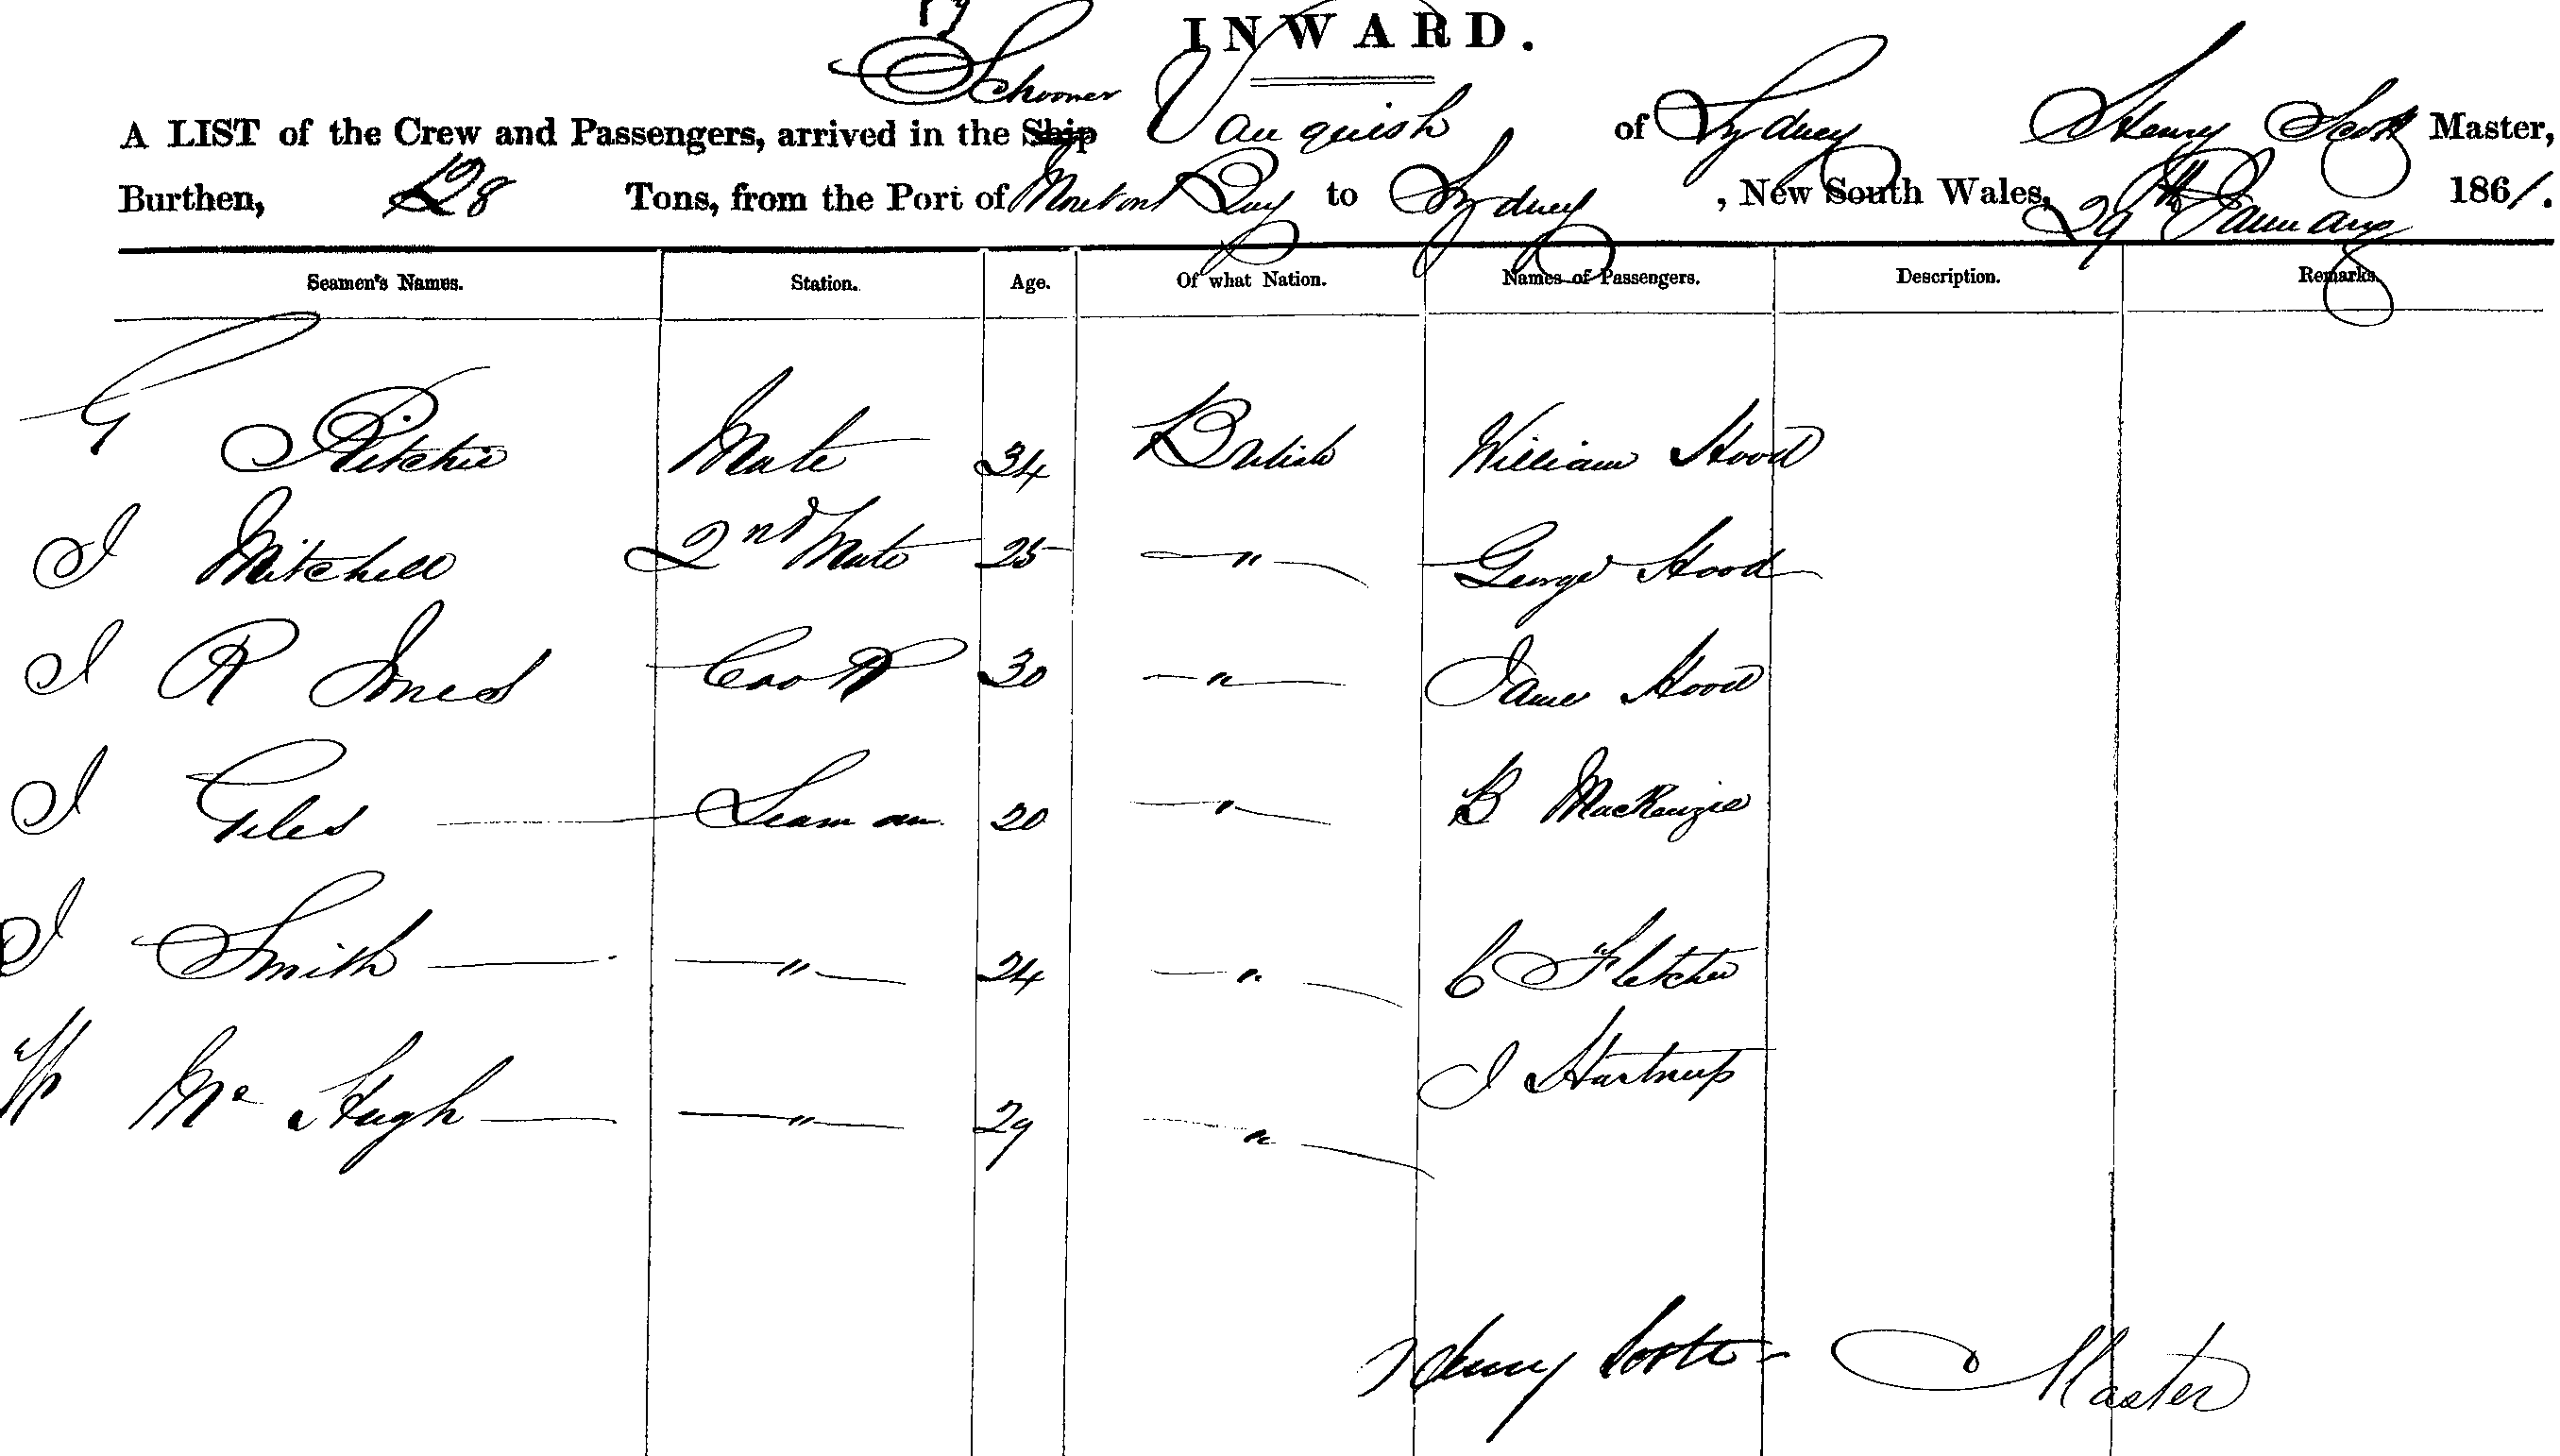 INWARD.
Schooner
A LIST of the Crew and Passengers, arrived in the Ship Vanquish of Sydney Henry Scott Master,
Burthen, 128 Tons, from the Port of Moreton Bay to Sydney, New South Wales, 29th January 1861.
Seamen's Names. Station. Age. Of what Nation. Names of Passengers. Description. Remarks.
G Ritchie Mate 34 British William Hood
J Mitchell 2nd Mate 25 " George Hood
J R Jones Cook 30 " James Hood
J Giles Seaman 20 " B MacKenzie
J Smith " 24 " C Fletcher
Mc Hugh " 29 " J Hartnup
Henry Scott Master